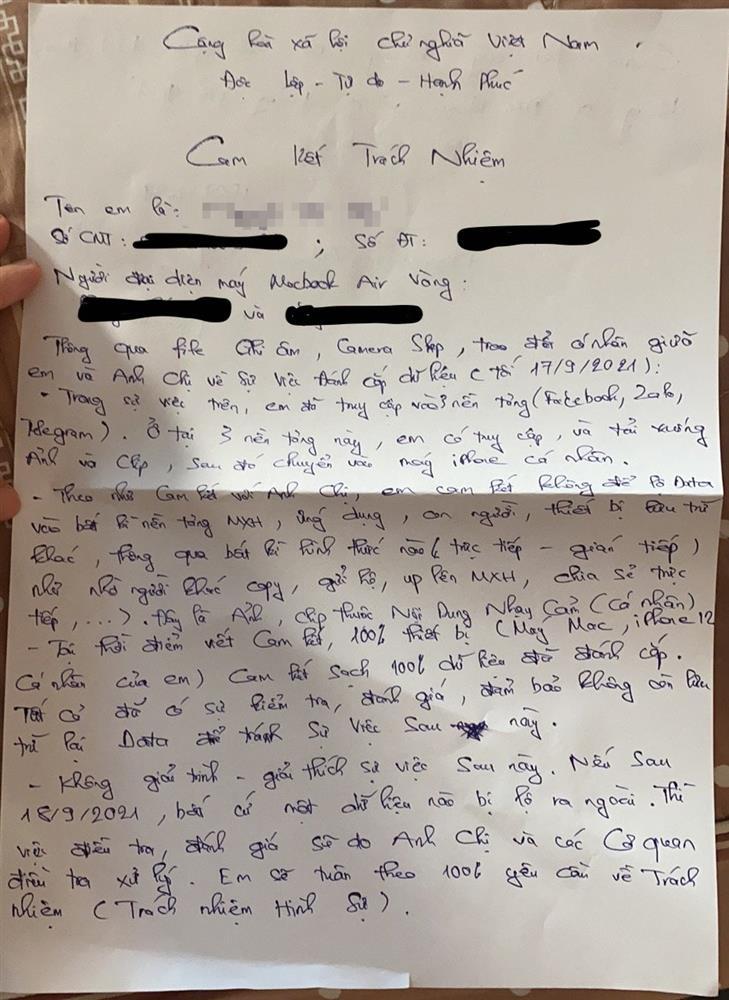 Cộng hoà xã hội chủ nghĩa Việt Nam.
Độc lập - Tự do - Hạnh Phúc
Cam Kết Trách Nhiệm
Tên em là:
Số CMT: ; Số ĐT:
Người đại diện máy Macbook Air Vàng:
và
Thông qua file Ghi âm, Camera Shop, trao đổi cá nhân giữa
em và Anh Chị về Sự việc Đánh cắp dữ liệu (tối 17/9/2021):
- Trong sự việc trên, em đã truy cập vào 3 nền tảng (Facebook, Zalo,
Telegram). Ở tại 3 nền tảng này, em có truy cập, và tải xuống
Ảnh và Clip, sau đó chuyển vào máy iPhone cá nhân.
- Theo như Cam kết với Anh Chị, em cam kết không để lộ Data
vào bất kì nền tảng MXH, ứng dụng, con người, thiết bị lưu trữ
khác, thông qua bất kì hình thức nào (trực tiếp - gián tiếp)
như nhờ người khác copy, gửi hộ, up lên MXH, chia sẻ trực
tiếp, ...). Đây là Ảnh, clip thuộc Nội Dung Nhạy Cảm (Cá nhân)
- Tại thời điểm viết Cam kết, 100% thiết bị (Máy Mac, iPhone 12
Cá nhân của em) Cam kết sạch 100% dữ liệu đã đánh cắp.
Tất cả đã có sự kiểm tra, đánh giá, đảm bảo không còn lưu
trữ lại Data để tránh sự việc sau này.
- Không giải trình - giải thích sự việc sau này. Nếu sau
18/9/2021, bất cứ một dữ liệu nào bị lộ ra ngoài. Thì
việc điều tra, đánh giá sẽ do Anh Chị và các Cơ quan
điều tra xử lý. Em sẽ tuân theo 100% yêu cầu về Trách
nhiệm (Trách nhiệm Hình Sự).